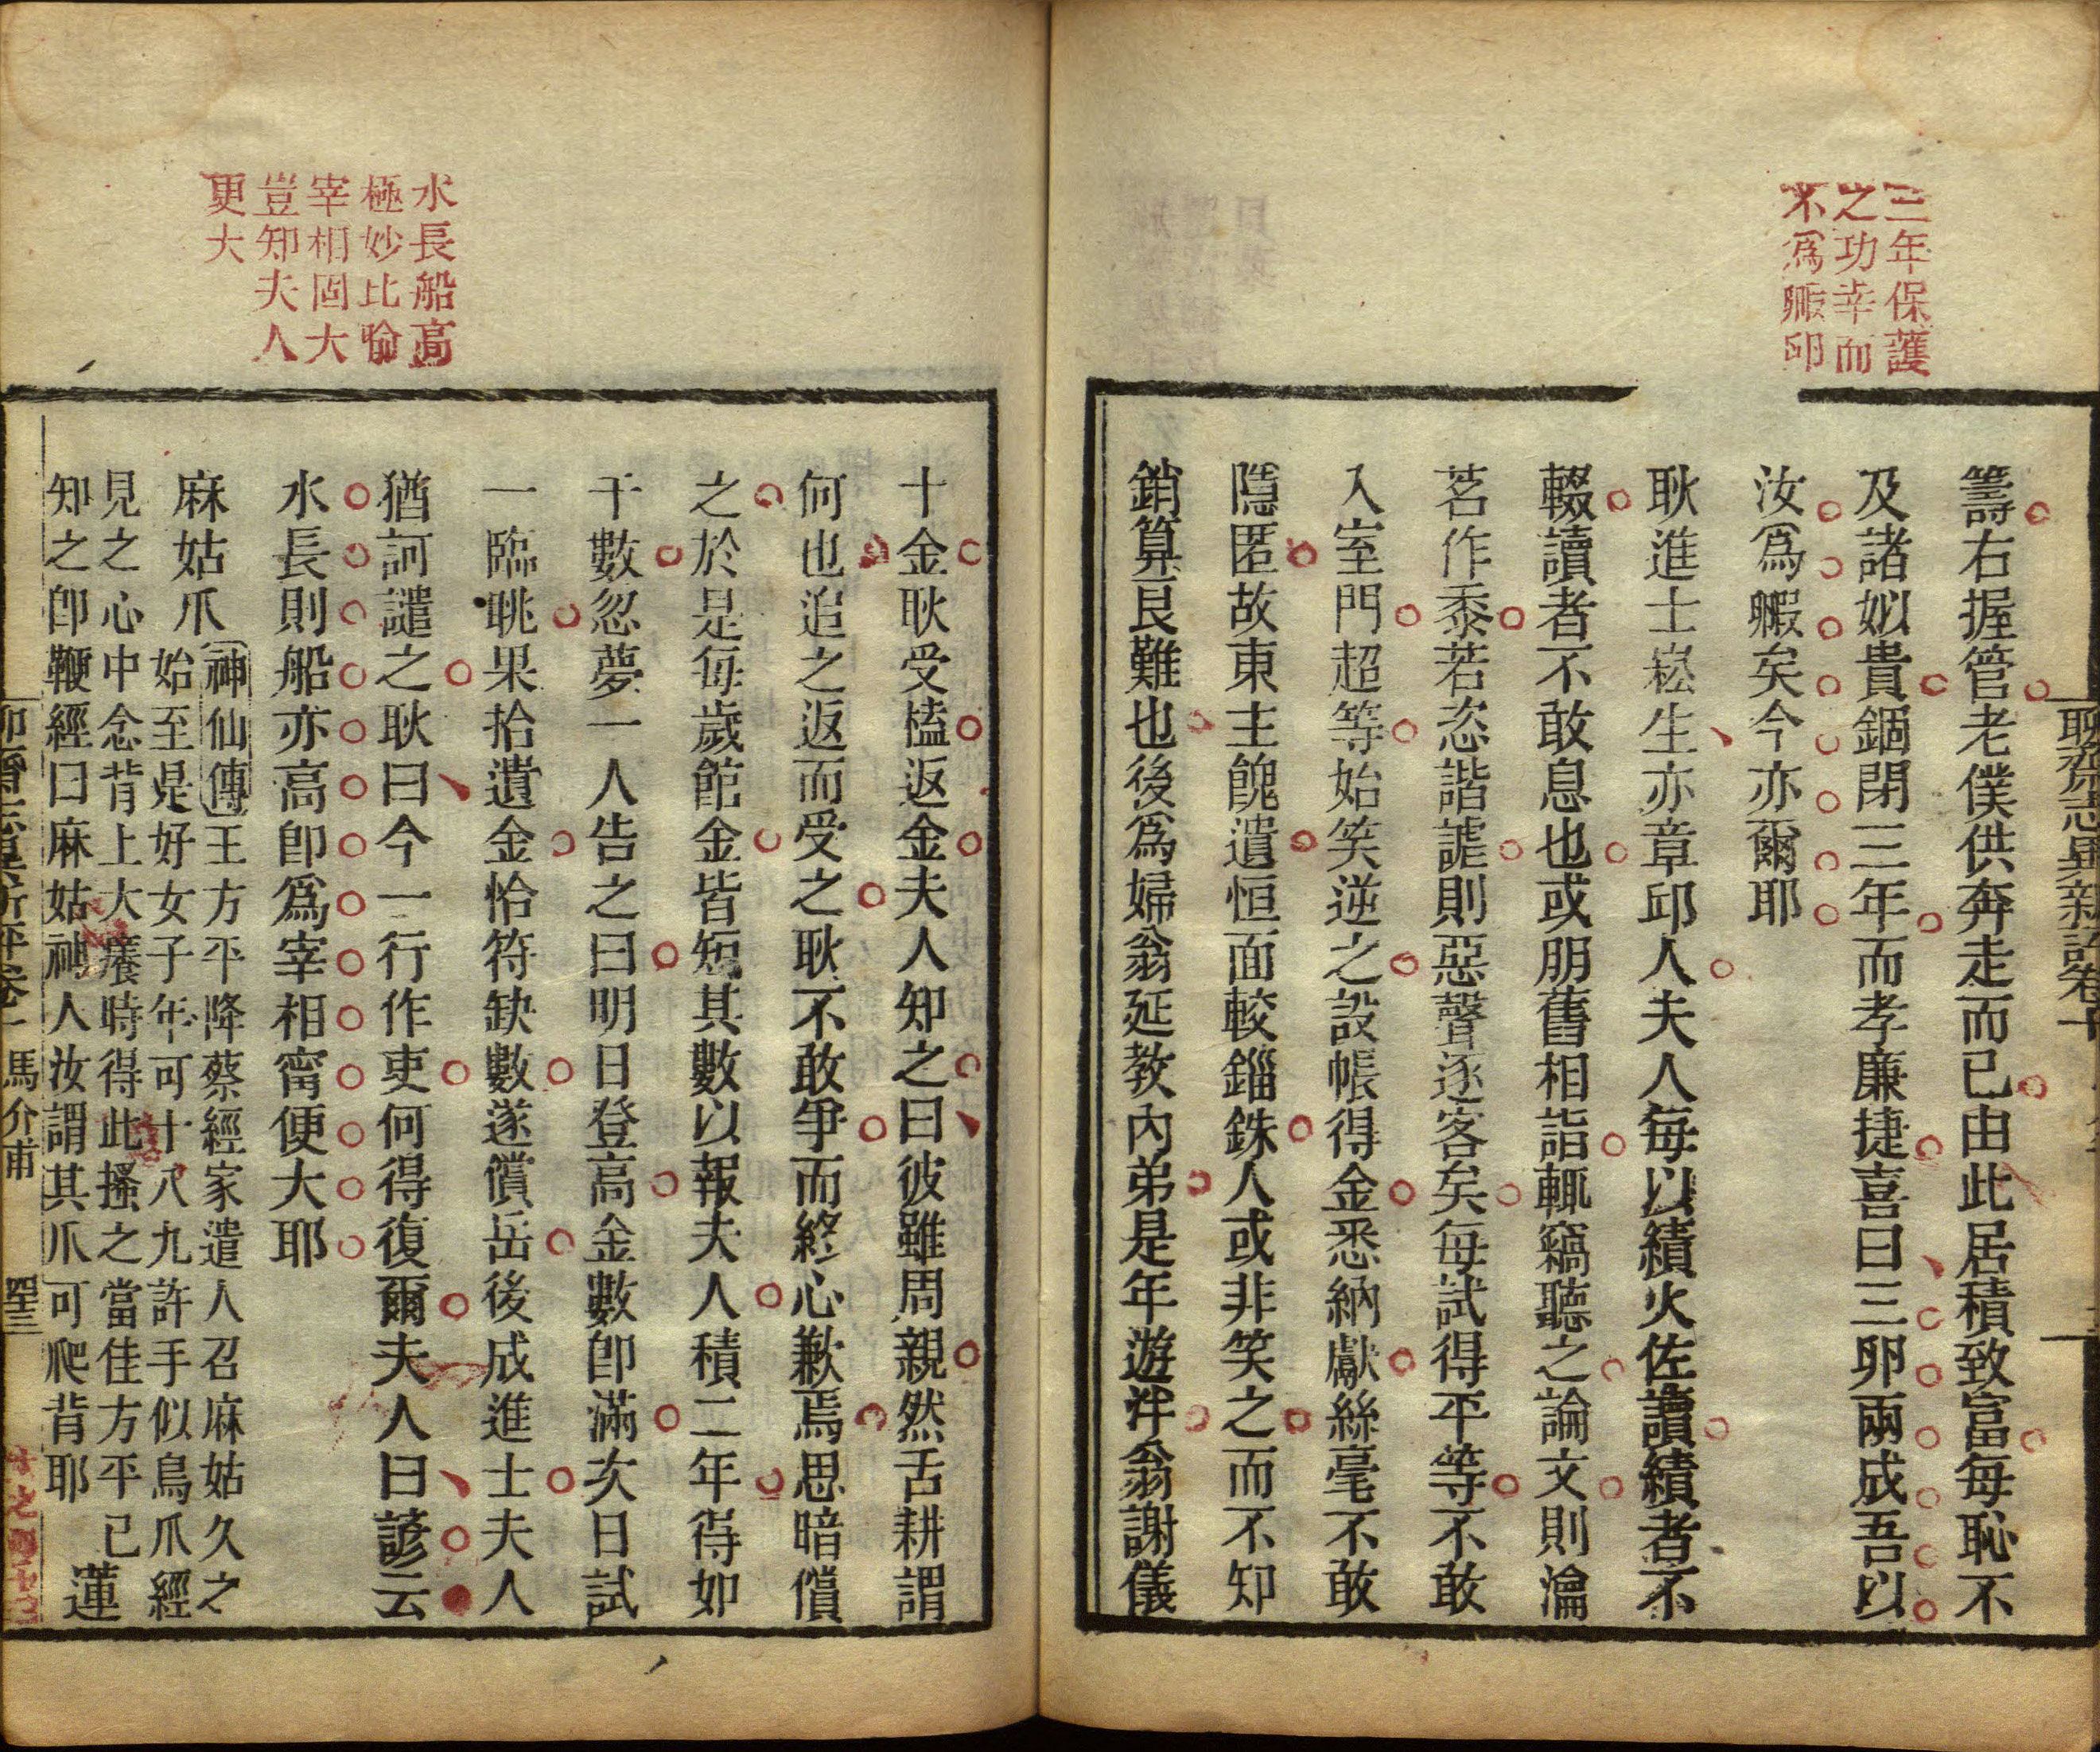 三年保護
之功幸而
不爲毈卵
聊齋志異新評卷十
籌右握管老僕供奔走而已由此居積致富每恥不
及諸姒貴錮閉三年而孝廉捷喜曰三卵兩成吾以
汝爲毈矣今亦爾耶
耿進士崧生亦章邱人夫人每以績火佐讀績者不
輟讀者不敢息也或朋舊相詣輒竊聽之論文則瀹
茗作黍若恣諧謔則惡聲逐客矣每試得平等不敢
入室門超等始笑逆之設帳得金悉納獻絲毫不敢
隱匿故東主餽遺恒面較錙銖人或非笑之而不知
銷算良難也後爲婦翁延教內弟是年遊泮翁謝儀
水長船高
極妙比喻
宰相固大
豈知夫人
更大
十金耿受榼返金夫人知之曰彼雖周親然舌耕謂
何也追之返而受之耿不敢爭而終心歉焉思暗償
之於是每歲館金皆短其數以報夫人積二年得如
干數忽夢一人告之曰明日登高金數卽滿次日試
一臨眺果拾遺金恰符缺數遂償岳後成進士夫人
猶訶譴之耿曰今一行作吏何得復爾夫人曰諺云
水長則船亦高卽爲宰相甯便大耶
麻姑爪
神仙傳王方平降蔡經家遣人召麻姑久之
始至是好女子年可十八九許手似鳥爪經
見之心中念背上大癢時得此搔之當佳方平已
知之卽鞭經曰麻姑神人汝謂其爪可爬背耶
蓮
聊齋志異新評卷十
馬介甫